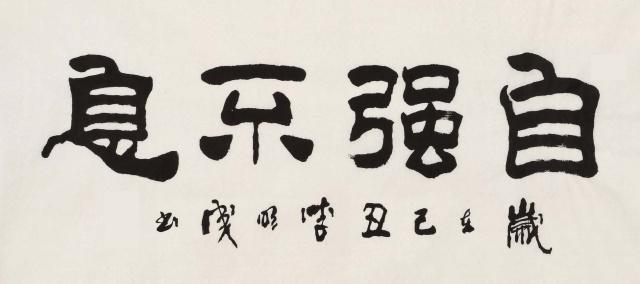 自强不息
歲在己丑李明书